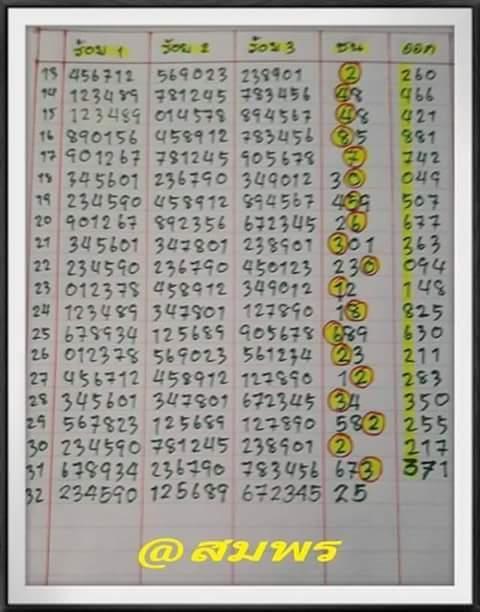 ร้อย 1 ร้อย 2 ร้อย 3 ชน ออก
13 456712 569023 238901 2 260
14 123489 781245 783456 48 466
15 123489 014578 894567 48 421
16 890156 458912 783456 85 881
17 901267 781245 905678 7 742
18 345601 236790 349012 30 049
19 234590 458912 894567 459 507
20 901267 892356 672345 26 677
21 345601 347801 238901 301 363
22 234590 236790 450123 230 094
23 012378 458912 349012 12 148
24 123489 347801 127890 18 825
25 678934 125689 905678 689 630
26 012378 569023 561234 23 211
27 456712 458912 127890 12 283
28 345601 347801 672345 34 350
29 567823 125689 127890 582 255
30 234590 781245 238901 2 217
31 678934 236790 783456 673 371
32 234590 125689 672345 25
@สมพร